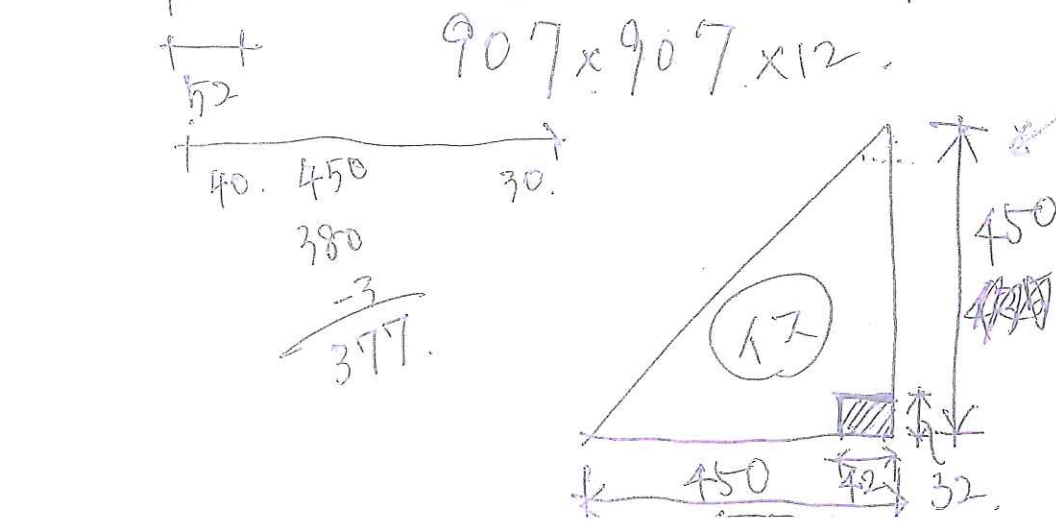 907×907×12.
52
40. 450 30.
380
-3
377.
450
12
450 42 32.